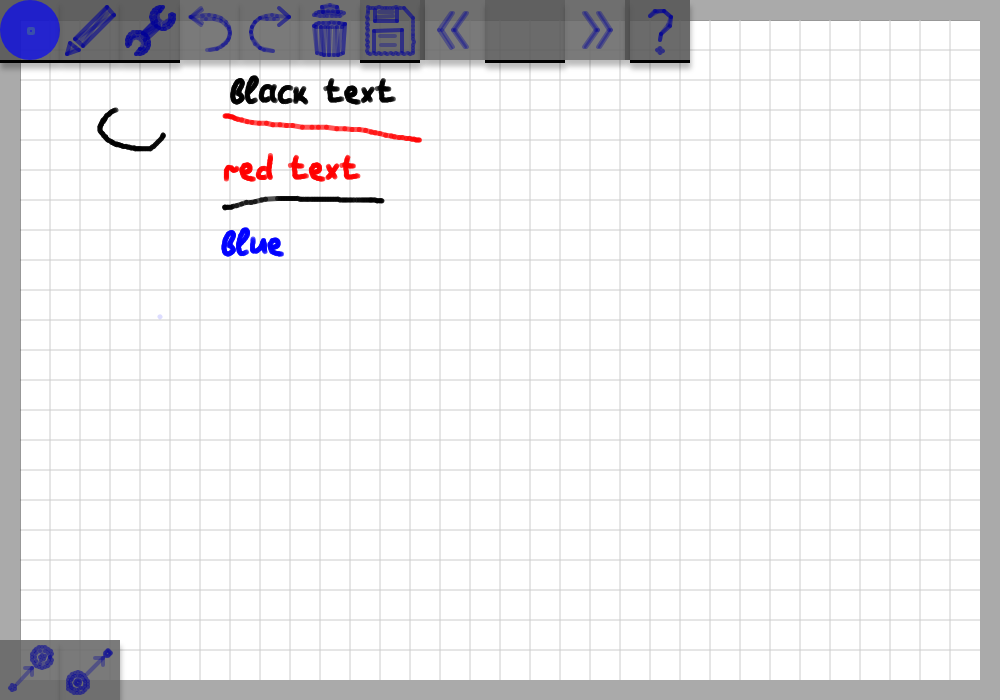 Black text
red text
Blue